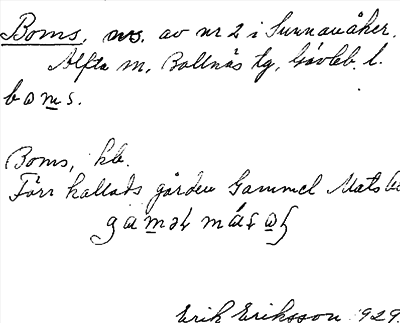 Boms, ns. av nr 2 i Sunnanåker.
Alfta sn, Bollnäs tg, Gävleb. l.
boms.
Boms, hb.
Förr kallads gården Gammel Mats
Erik Eriksson 1929.